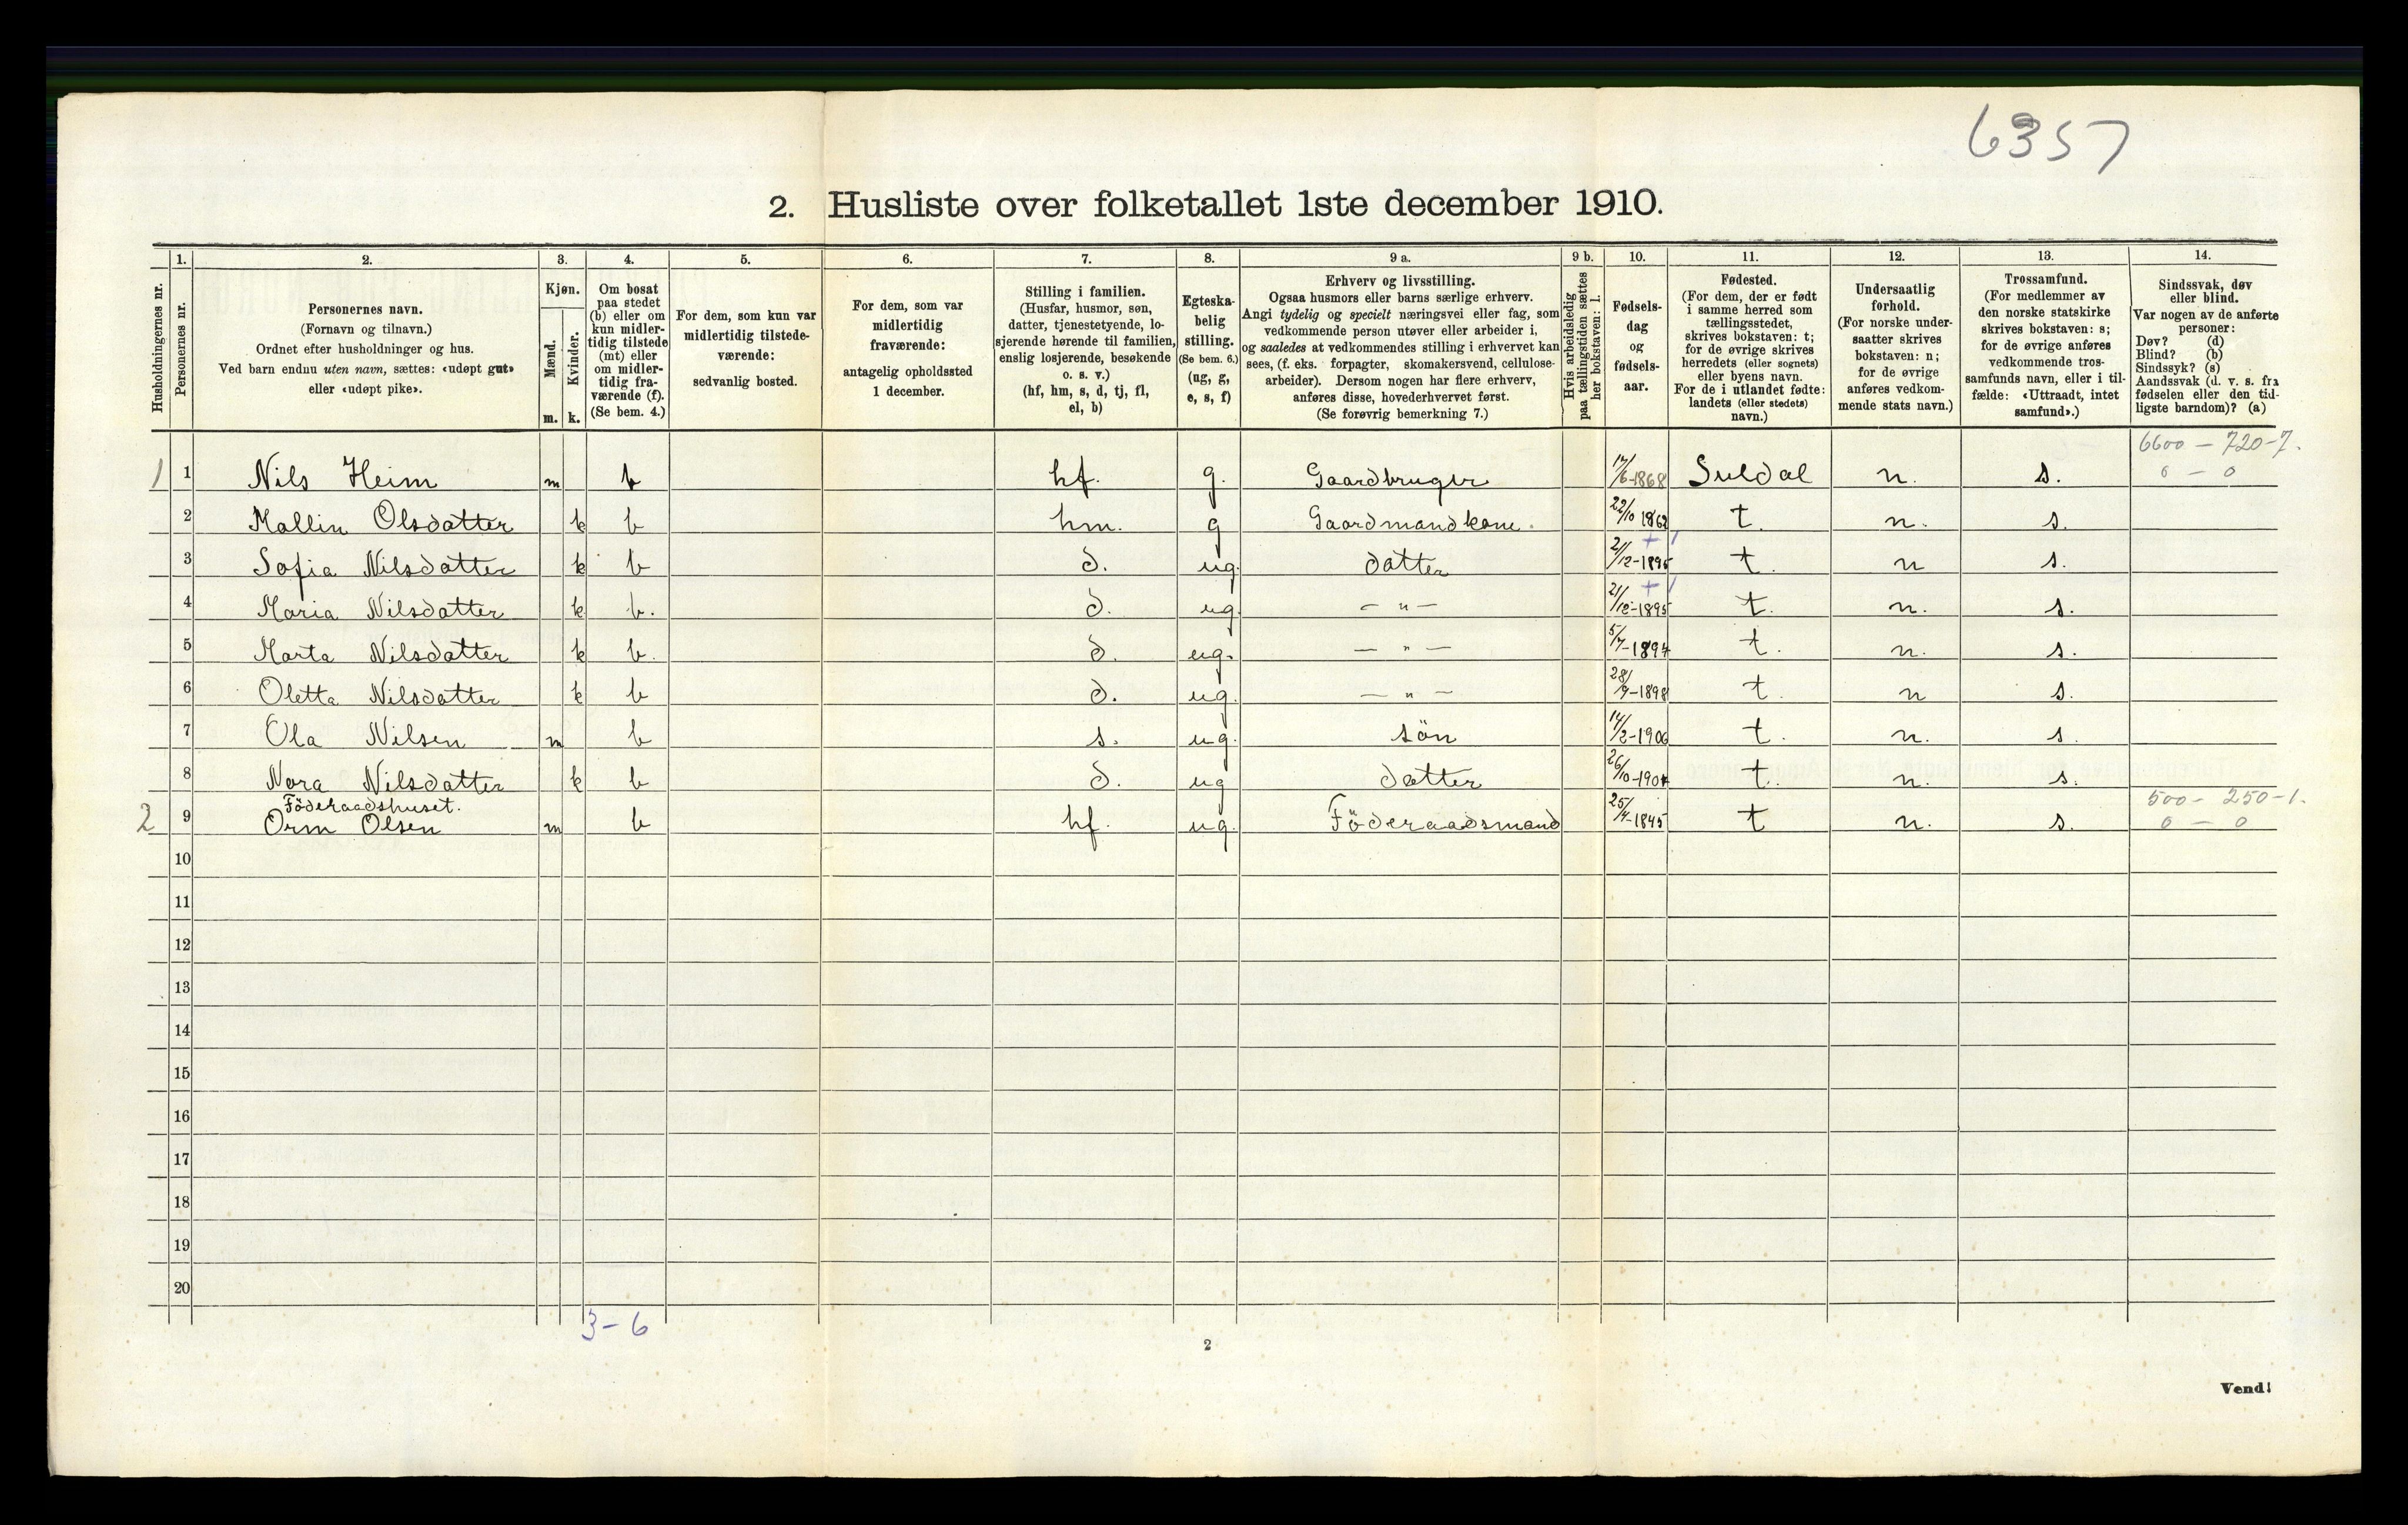 6357
2. Husliste over folketallet 1ste december 1910.
Husholdningernes nr.
1.
Personernes nr.
2.
Personernes navn.
(Fornavn og tilnavn.)
Ordnet efter husholdninger og hus.
Ved barn endnu uten navn, sættes: «udøpt gut»
eller «udøpt pike».
3.
Kjøn.
Mænd.
m.
Kvinder.
k.
4.
Om bosat
paa stedet
(b) eller om
kun midler-
tidig tilstede
(mt) eller
om midler-
tidig fra-
værende (f).
(Se bem. 4.)
5.
For dem, som kun var
midlertidig tilstede-
værende:
sedvanlig bosted.
6.
For dem, som var
midlertidig
fraværende:
antagelig opholdssted
1 december.
7.
Stilling i familien.
(Husfar, husmor, søn,
datter, tjenestetyende, lo-
sjerende hørende til familien,
enslig losjerende, besøkende
o. s. v.)
(hf, hm, s, d, tj, fl,
el, b)
8.
Egteska-
belig
stilling.
(Se bem. 6.)
(ug, g,
e, s, f)
9 a.
Erhverv og livsstilling.
Ogsaa husmors eller barns særlige erhverv.
Angi tydelig og specielt næringsvei eller fag, som
vedkommende person utøver eller arbeider i,
og saaledes at vedkommendes stilling i erhvervet kan
sees, (f. eks. forpagter, skomakersvend, cellulose-
arbeider). Dersom nogen har flere erhverv,
anføres disse, hovederhvervet først.
(Se forøvrig bemerkning 7.)
9 b.
Hvis arbeidsledig
paa tællingstiden sættes
her bokstaven: l.
10.
Fødsels-
dag
og
fødsels-
aar.
11.
Fødested.
(For dem, der er født
i samme herred som
tællingsstedet,
skrives bokstaven: t;
for de øvrige skrives
herredets (eller sognets)
eller byens navn.
For de i utlandet fødte:
landets (eller stedets)
navn.)
12.
Undersaatlig
forhold.
(For norske under-
saatter skrives
bokstaven: n;
for de øvrige
anføres vedkom-
mende stats navn.)
13.
Trossamfund.
(For medlemmer av
den norske statskirke
skrives bokstaven: s;
for de øvrige anføres
vedkommende tros-
samfunds navn, eller i til-
fælde: «Uttraadt, intet
samfund».)
14.
Sindssvak, døv
eller blind.
Var nogen av de anførte
personer:
Døv? (d)
Blind? (b)
Sindssyk? (s)
Aandssvak (d. v. s. fra
fødselen eller den tid-
ligste barndom)? (a)
6600 – 720-7.
1 1 Nils Heim m b hf. g. Gaardbruger 17/6-1868 Suldal n. s. 0 – 0
2 Mallin Olsdatter k b hm. g Gaardmandkone. 22/10 1862 t. n. s.
3 Sofia Nilsdatter k b d. ug. datter 21/12-1895 t. n s.
4 Maria Nilsdatter k b. d. ug. – " – 21/12-1895 t. n. s.
5 Marta Nilsdatter k b. d. ug. – " – 5/7-1897 t. n. s.
6 Oletta Nilsdatter k b d. ug. – " – 28/9-1898 t. n s.
7 Ola Nilsen m b s. ug. sön 14/2-1900 t. n. s.
8 Nora Nilsdatter k b d. ug datter 26/10-1904 t. n. s.
Föderaadshuset. 500 – 250-1.
2 9 Orm Olsen m b hf. ug. Föderaadsmand 25/7-1845 t n. s. 0 – 0
10
11
12
13
14
15
16
17
18
19
20
3-6
2
Vend!